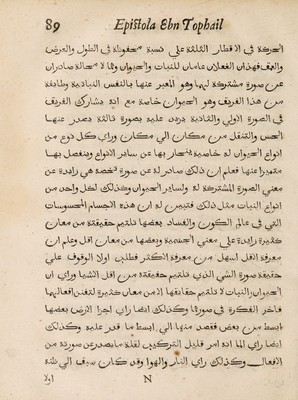 89 Epistola Ebn Tophail
الحركة في الاقطار الثلثة علي نسبة محفوظة في الطول والعرض
والعمق فهذان الفعلان عامان للنبات والحيوان وهما لا محالة صادران
عن صورة مشتركة لهما وهو المعبر عنها بالنفس النباتية وطايفة
من هذا الفريق وهو الحيوان خاصة مع انه يشارك الفريق
في الصورة الاولي والثانية يزيد عليه بصورة ثالثة يصدر عنها
الحس والتنقل من مكان الي مكان وراي كل نوع من
انواع الحيوان له خاصية ينحاز بها عن ساير الانواع وينفصل بها
متميزا عنها فعلم ان ذلك صادر له عن صورة تخصه هي زايدة عن
معني الصورة المشتركة له ولساير الحيوان وكذلك لكل واحد من
انواع النبات مثل ذلك فتبين له ان هذه الاجسام المحسوسات
التي في عالم الكون والفساد بعضها تلتيم حقيقته من معان
كثيرة زايدة علي معني الجسمية وبعضها من معان اقل وعلم ان
معرفة الاقل اسهل من معرفة الاكثر فطلب اولا الوقوف علي
حقيقة صورة الشي الذي تلتيم حقيقته من اقل الاشيا وراي ان
الحيوان والنبات لا تلتيم حقايقها الا من معان كثيرة لتفنن افعالهما
فاخر الفكرة في صورهما وكذلك راي اجزا الارض بعضها
ابسط من بعض فقصد منها الي ابسط ما قدر عليه وكذلك
راي الما انه امر قليل التركيب لقلة ما يصدر عن صورته من
الافعال وكذلك راي النار والهوا وقد كان سبق الي ظنه
N اولا